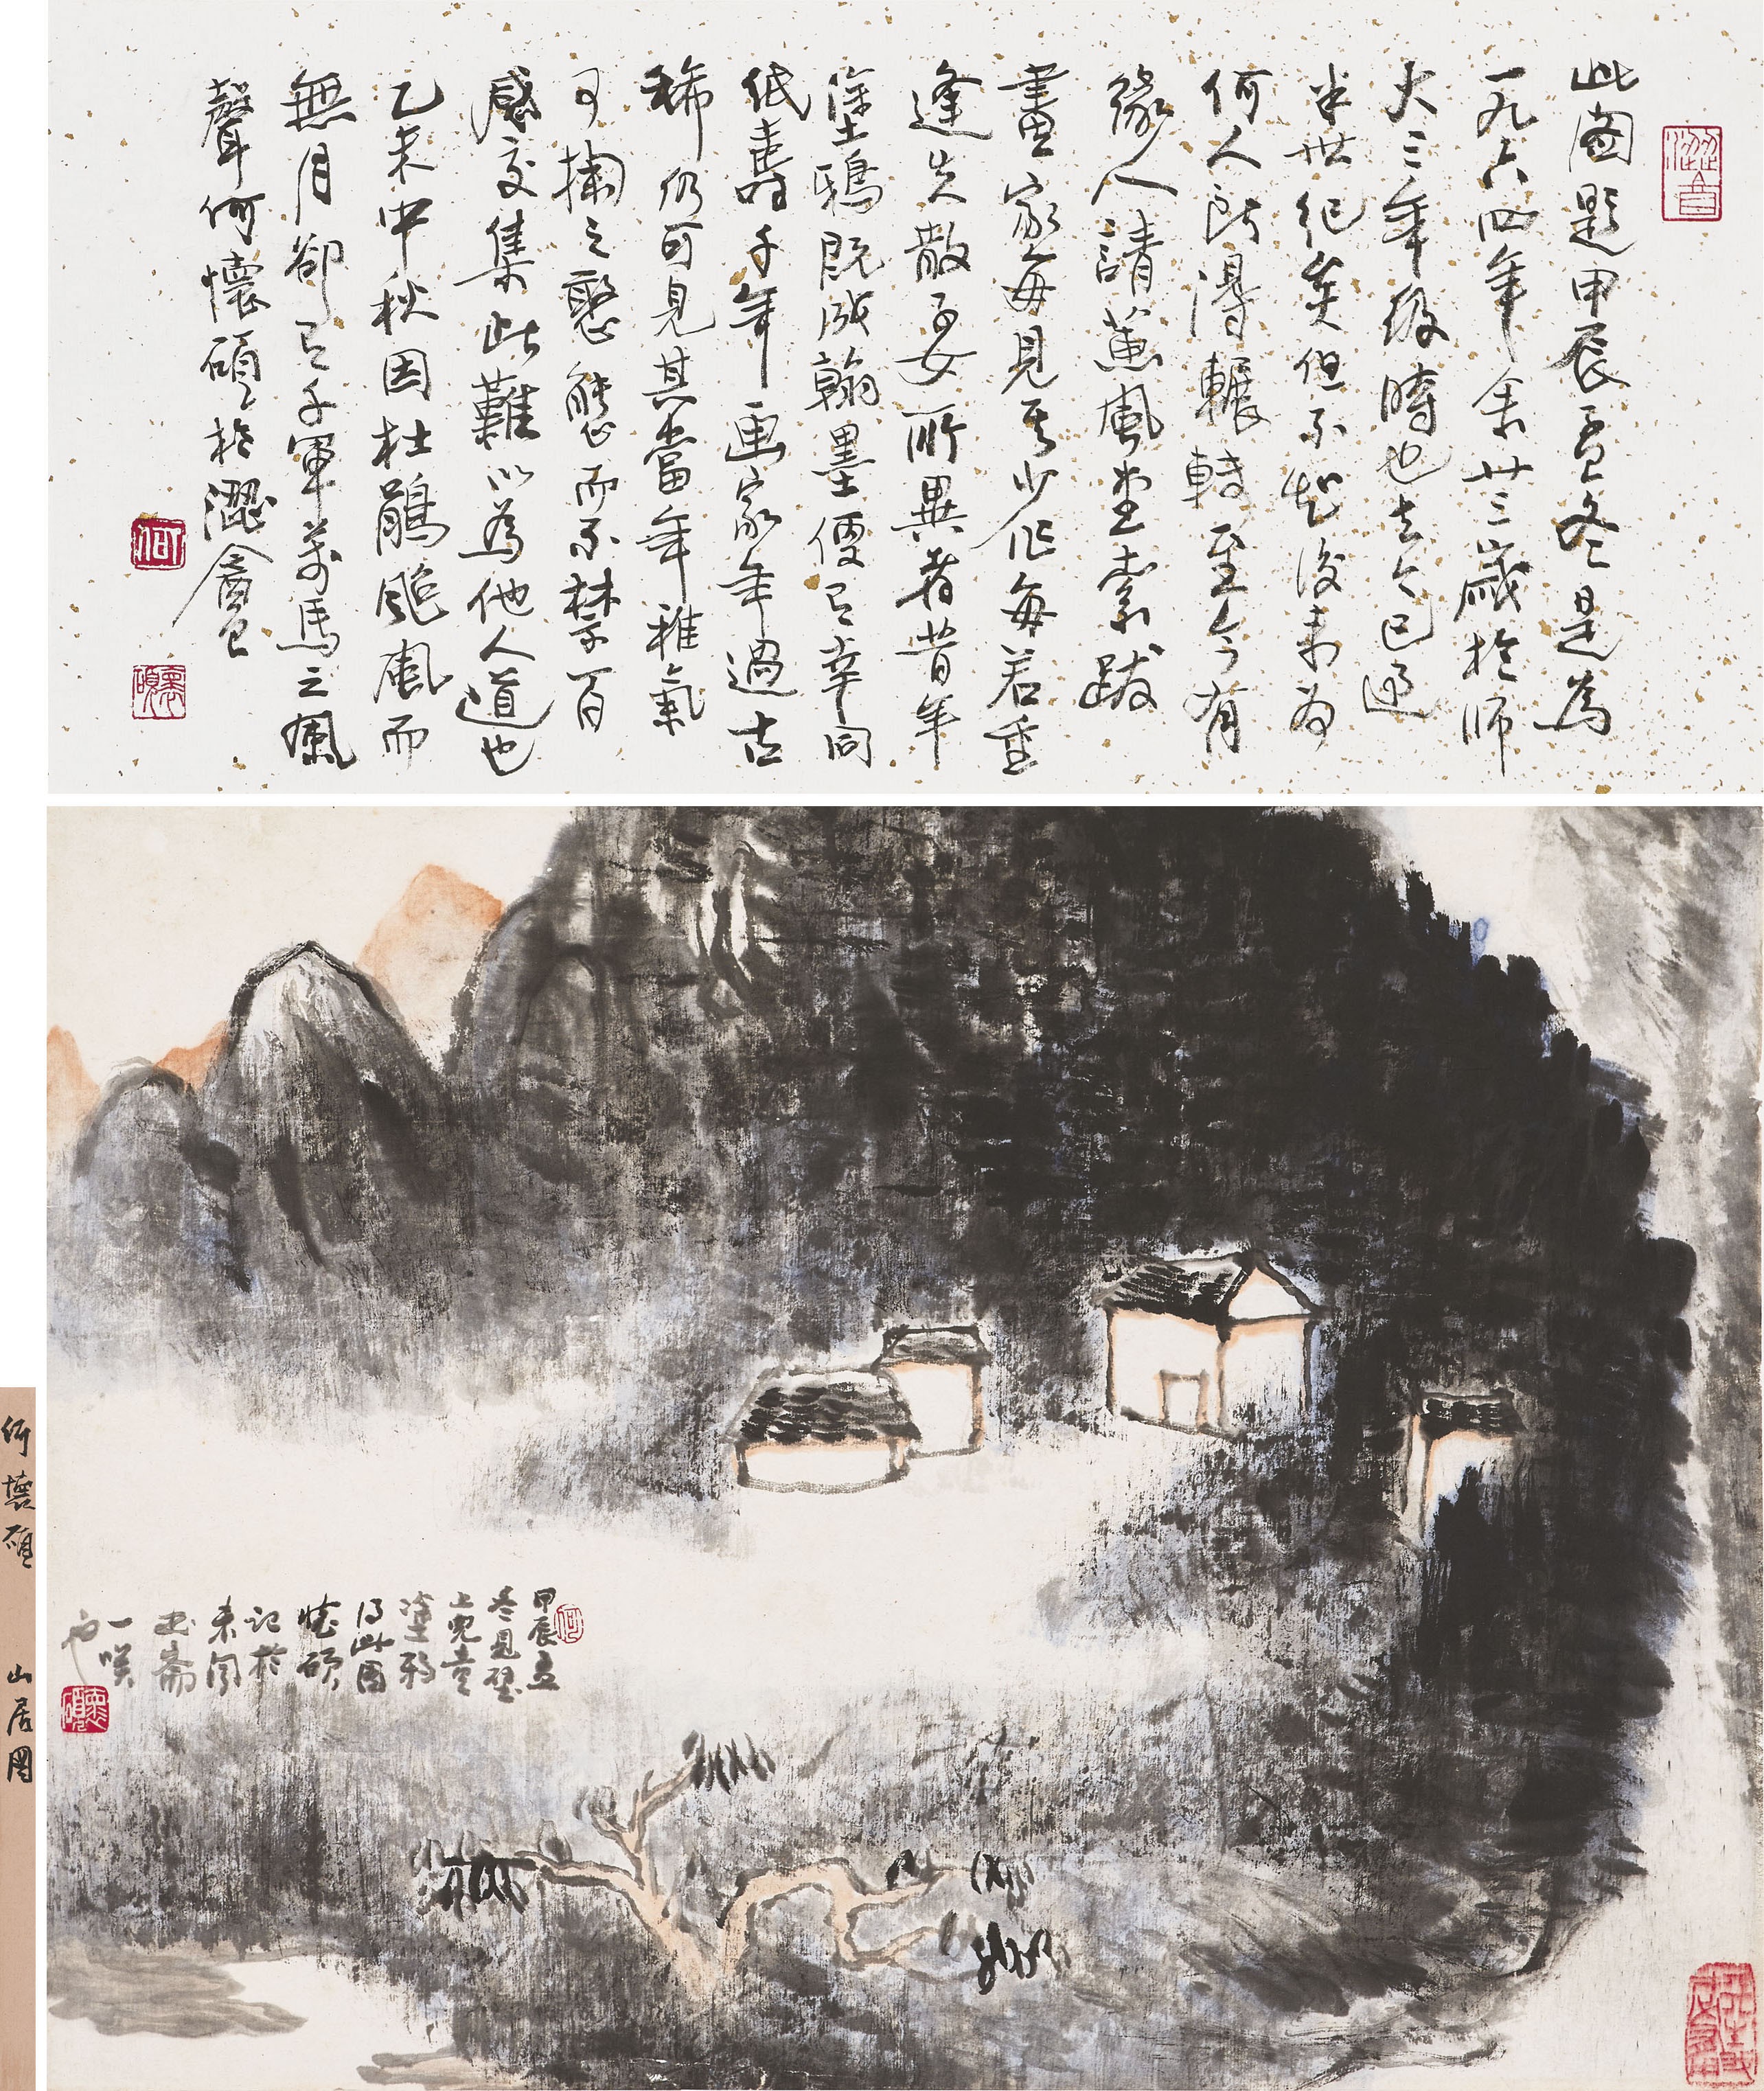 澀音
此圖題甲辰孟冬是為
一九六四年余廿三歲於師
大三年級時也去今已逾
半世紀矣但不知後來為
何人所得輾轉至今有
緣人請蕙風堂索跋
畫家每見其少作每若重
逢失散子女所異者昔年
塗鴉既成翰墨便已幸同
紙壽千年畫家年過古
稀仍可見其當年稚氣
可掬之憨態而不禁百
感交集此難以為他人道也
乙未中秋因杜鵑颱風而
無月卻已千軍萬馬之風
聲何懷碩於澀盦
何
懷碩
甲辰孟
冬見壁
上兒童
塗鴉
得此圖
懷碩
記於
未閑
畫齋
一笑
也
何
懷碩
何懷碩 山居圖